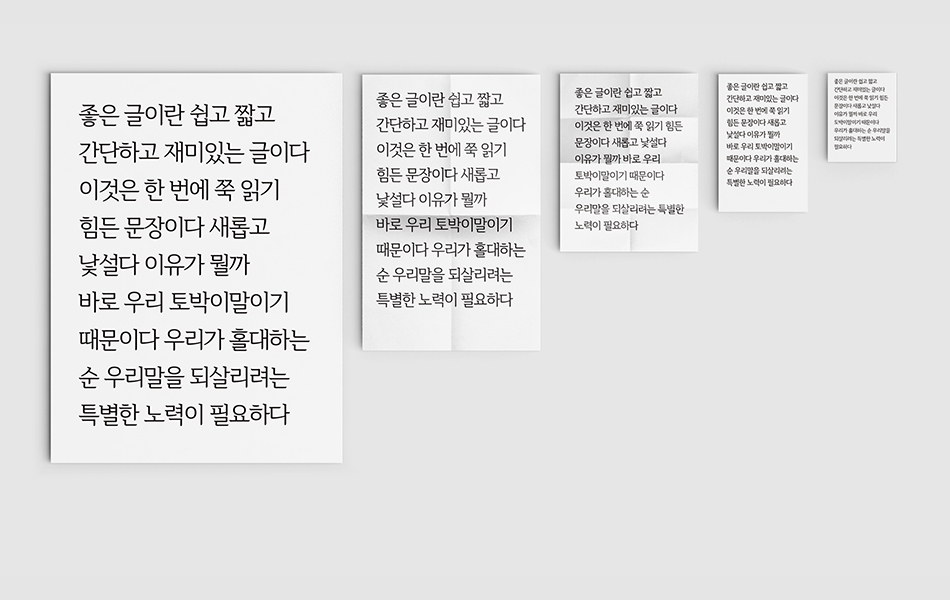 좋은 글이란 쉽고 짧고
간단하고 재미있는 글이다
이것은 한 번에 쭉 읽기
힘든 문장이다 새롭고
낯설다 이유가 뭘까
바로 우리 토박이말이기
때문이다 우리가 홀대하는
순 우리말을 되살리려는
특별한 노력이 필요하다
좋은 글이란 쉽고 짧고
간단하고 재미있는 글이다
이것은 한 번에 쭉 읽기
힘든 문장이다 새롭고
낯설다 이유가 뭘까
바로 우리 토박이말이기
때문이다 우리가 홀대하는
순 우리말을 되살리려는
특별한 노력이 필요하다
좋은 글이란 쉽고 짧고
간단하고 재미있는 글이다
이것은 한 번에 쭉 읽기 힘든
문장이다 새롭고 낯설다
이유가 뭘까 바로 우리
토박이말이기 때문이다
우리가 홀대하는 순
우리말을 되살리려는 특별한
노력이 필요하다
좋은 글이란 쉽고 짧고
간단하고 재미있는 글이다
이것은 한 번에 쭉 읽기
힘든 문장이다 새롭고
낯설다 이유가 뭘까
바로 우리 토박이말이기
때문이다 우리가 홀대하는
순 우리말을 되살리려는
특별한 노력이 필요하다
좋은 글이란 쉽고 짧고
간단하고 재미있는 글이다
이것은 한 번에 쭉 읽기 힘든
문장이다 새롭고 낯설다
이유가 뭘까 바로 우리
토박이말이기 때문이다
우리가 홀대하는 순 우리말을
되살리려는 특별한 노력이
필요하다